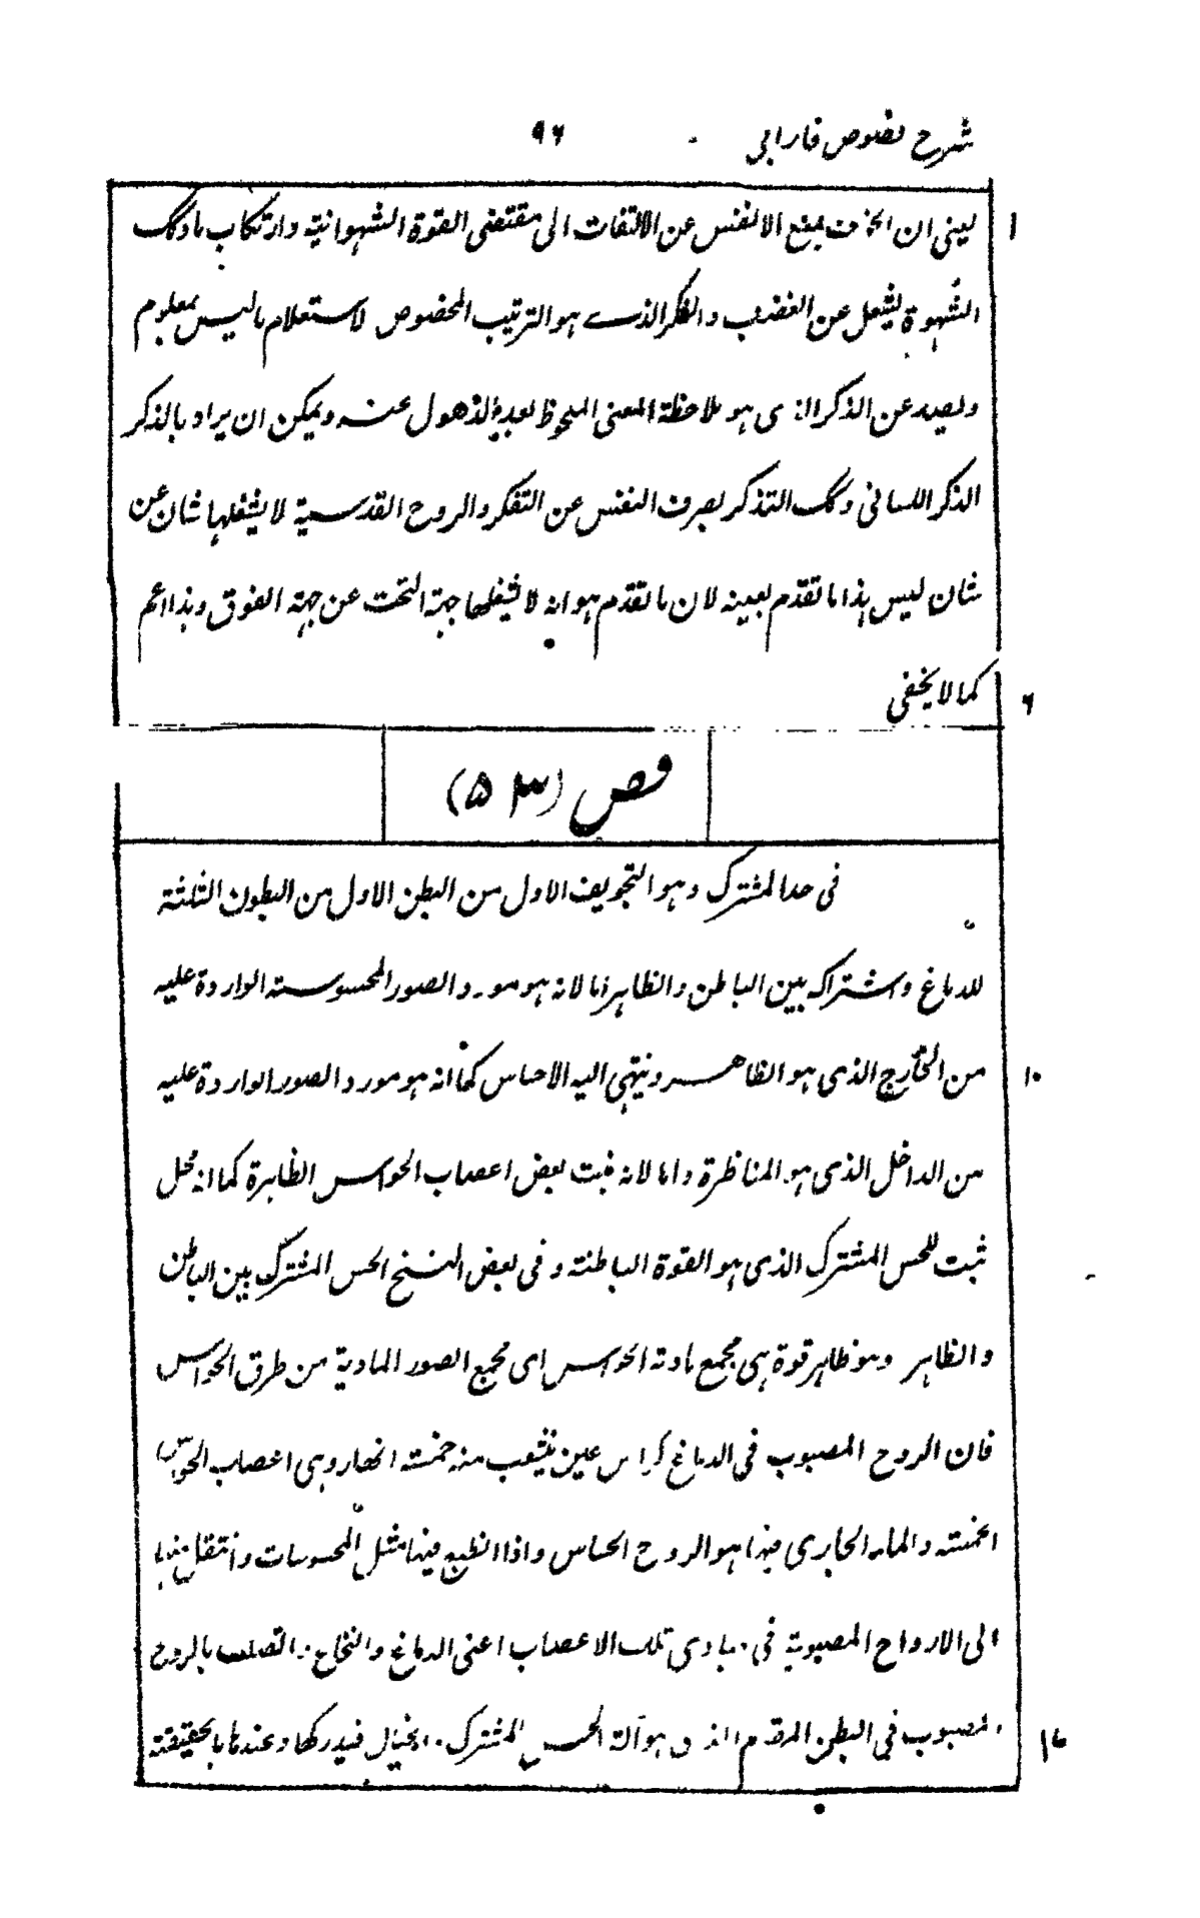 شرح نصوص فارابی ۹۶
یعنی ان الخوف یمنع النفس عن الالتفات الی مقتضی القوة الشهوانیة وارتکاب
الشهوة یشغل عن الغضب والفکر الذے هو الترتیب المخصوص لاستعلام ما لیس بمعلوم
ویصد عن الذکر الذی هو ملاحظة المعنی الملحوظ بعد الذهول عنه ویمکن ان یراد بالذکر
الذکر اللسانی التذکر یصرف النفس عن التفکر والروح القدسیة لا یشغلها شان عن
شان لیس هذا ما تقدم بعینه لان ما تقدم هو انه لا یشغلها جهة التحت عن جهة الفوق وهذا اعم
کما لا یخفی
فص (۵۳)
فی حد المشترک وهو التجویف الاول من البطن الاول من البطون الثلثة
للدماغ واشتراکه بین الباطن والظاهر اما لانه هو مورد الصور المحسوسة الواردة علیه
من الخارج الذی هو الظاهر وینتهی الیه الاحساس کما انه هو مورد الصور الواردة علیه
من الداخل الذی هو واما لانه بعض اعصاب الحواس الظاهرة کما انه محل
للحس المشترک الذی هو القوة الباطنة وفی بعض النسخ الحس المشترک بین الباطن
والظاهر وهو ظاهر قوة هی مجمع الحواس ای مجمع الصور المادیة من طرق الحواس
فان الروح المصبوب فی الدماغ کراس عین یتشعب منه خمسة انهار وهی اعصاب الحواس
الخمسة والماء الجاری فیها هو الروح الحساس واذا انطبع فیها مثل المحسوسات وانتقل منها
الی الارواح المصبوبة فی مبادی تلک الاعصاب اعنی الدماغ والنخاع اتصلت بالروح
المصبوب فی البطن المقدم الذی هو آلة الحس المشترک والخیال فیدرکها وعندها بالحقیقة
۱
۶
۱۰
۱۷